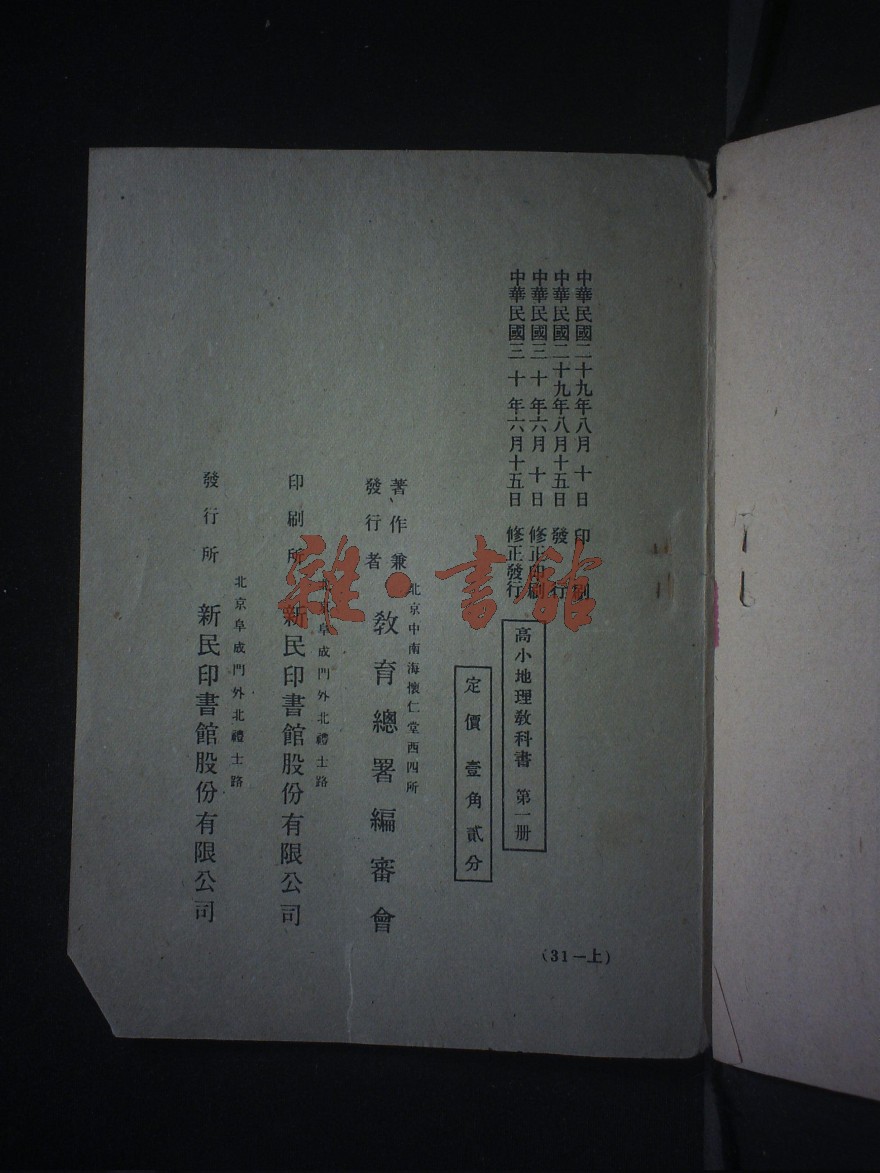 中華民國二十九年八月十日 印刷
中華民國二十九年八月十五日 發行
中華民國三十年六月十日 修正印刷
中華民國三十年六月十五日 修正發行
高小地理教科書 第一册
定價壹角貳分
著作兼
發行者
北京中南海懷仁堂西四所
教育總署編審會
印刷所
北京阜成門外北禮士路
新民印書館股份有限公司
發行所
北京阜成門外北禮士路
新民印書館股份有限公司
(31—上)
雜·書館